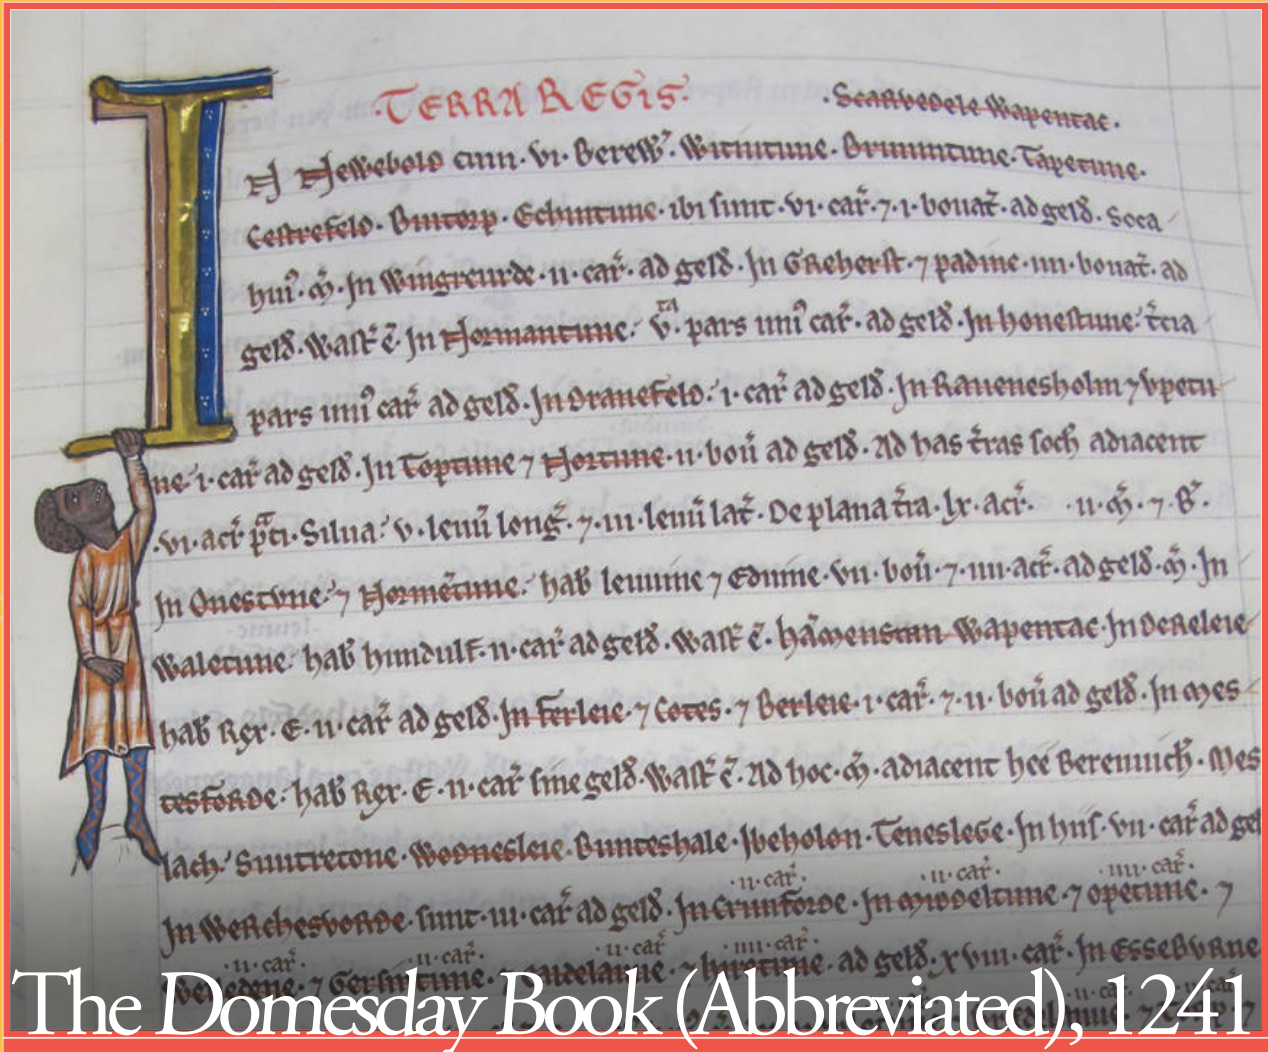 TERRA REGIS. Scarvedele Wapentac.
IN Newebold cum .vi. Berew̃. Witintune. Brimintune. Tapetune.
Cestrefeld. Buitorp. Echintune. ibi sunt .vi. car̃. ⁊ .i. bouat̃. ad geld̃. Soca
hui᾿. m̃. In Wingreurde .ii. car̃. ad geld̃. In Greherst. ⁊ padine .iiii. bouat̃. ad
geld̃. Wast̃ ẽ. In Normantune. v.ta pars uni᾿ car̃. ad geld̃. In honestune. t̃cia
pars uni᾿ car̃ ad geld̃. In Dranefeld. i. car̃ ad geld̃. In Rauenesholm ⁊ Vpetu
ne .i. car̃ ad geld̃. In Toptune ⁊ Nortune .ii. boũ ad geld̃. Ad has t̃ras soch̃ adiacent
.vi. acr̃ p̃ti. Silua. v. leuũ long̃. ⁊ .iii. leuũ lat̃. De plana t̃ra. lx. acr̃. .ii. m̃. ⁊ B̃.
In Onestune. ⁊ Normẽtune. hab̃ leuuine ⁊ Eduine .vii. boũ. ⁊ .iiii. acr̃. ad geld̃. m̃. In
Waletune. hab̃ hundulf .ii. car̃ ad geld̃. Wast̃ ẽ. hãmenstan Wapentac. In Dereleie
hab̃ Rex. E. ii. car̃ ad geld̃. In Ferleie. ⁊ Cotes. ⁊ Berleie .i. car̃. ⁊ .ii. boũ ad geld̃. In Mes
tesforde. hab̃ Rex. E. ii. car̃ sine geld̃. Wast̃ ẽ. Ad hoc. m̃. adiacent hee Bereuuich̃. Mes
lach. Suntretone. Wodnesleie. Bunteshale. Ibeholon. Teneslege. In hiis .vii. car̃ ad gel
.ii. car̃. .ii. car̃. .iiii. car̃.
In Werchesvorde sunt .iii. car̃ ad geld̃. In Crunforde. In middeltune. ⁊ opetune. ⁊
.ii. car̃. .ii. car̃. .ii. car̃ .iiii. car̃.
Welledene. ⁊ Gersintune. ⁊ hiretune. ad geld̃. xviii. car̃. In Esseburne
The Domesday Book (Abbreviated), 1241